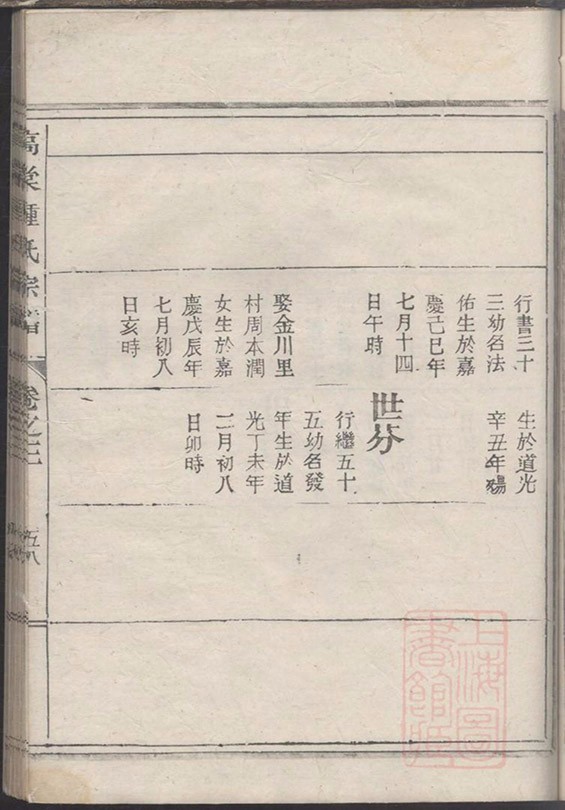 行書三十
三幼名法
佑生於嘉
慶己巳年
七月十四
日午時
娶金川里
村周本潤
女生於嘉
慶戊辰年
七月初八
日亥時
生於道光
辛丑年殤
世芬
行繼五十
五幼名發
年生於道
光丁未年
二月初八
日卯時
氏宗譜
卷之三
五八
上海圖
書館藏